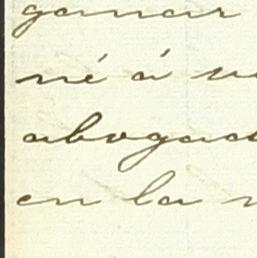 ganar
né á
abogad
en la